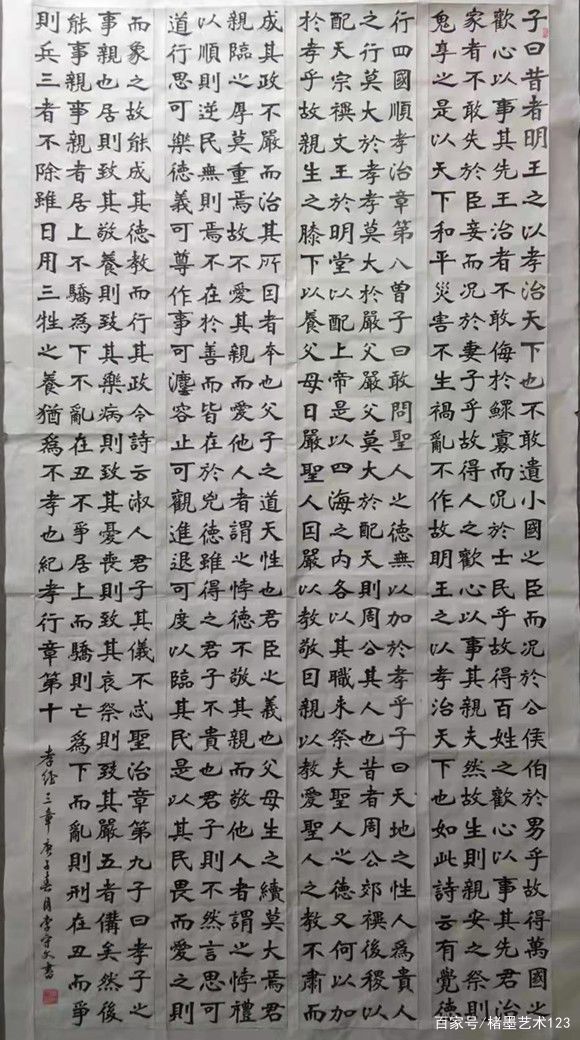 子曰昔者明王之以孝治天下也不敢遺小國之臣而況於公侯伯於男乎故得萬國之
歡心以事其先王治者不敢侮於鰥寡而況於士民乎故得百姓之歡心以事其先君治
家者不敢失於臣妾而況於妻子乎故得人之歡心以事其親夫然故生則親安之祭則
鬼享之是以天下和平災害不生禍亂不作故明王之以孝治天下也如此詩云有覺德
行四國順孝治章第八曾子曰敢問聖人之德無以加於孝乎子曰天地之性人爲貴人
之行莫大於孝孝莫大於嚴父嚴父莫大於配天則周公其人也昔者周公郊禩後稷以
配天宗禩文王於明堂以配上帝是以四海之内各以其職来祭夫聖人之德又何以加
於孝乎故親生之膝下以養父母日嚴聖人因嚴以教敬因親以教愛聖人之教不肅而
成其政不嚴而治其所因者本也父子之道天性也君臣之義也父母生之續莫大焉君
親臨之厚莫重焉故不愛其親而愛他人者謂之悖德不敬其親而敬他人者謂之悖禮
以順則逆民無則焉不在於善而皆在於兇德雖得之君子不貴也君子則不然言思可
道行思可樂德義可尊作事可瀍容止可觀進退可度以臨其民是以其民畏而愛之則
而象之故能成其德教而行其政令詩云淑人君子其儀不忒聖治章第九子曰孝子之
事親也居則致其敬養則致其樂病則致其憂喪則致其哀祭則致其嚴五者備矣然後
能事親事親者居上不驕為下不亂在丑不爭居上而驕則亡爲下而亂則刑在丑而爭
則兵三者不除雖日用三牲之養猶爲不孝也紀孝行章第十
孝經三章庚子春月李守文書
百家号/楮墨艺术123